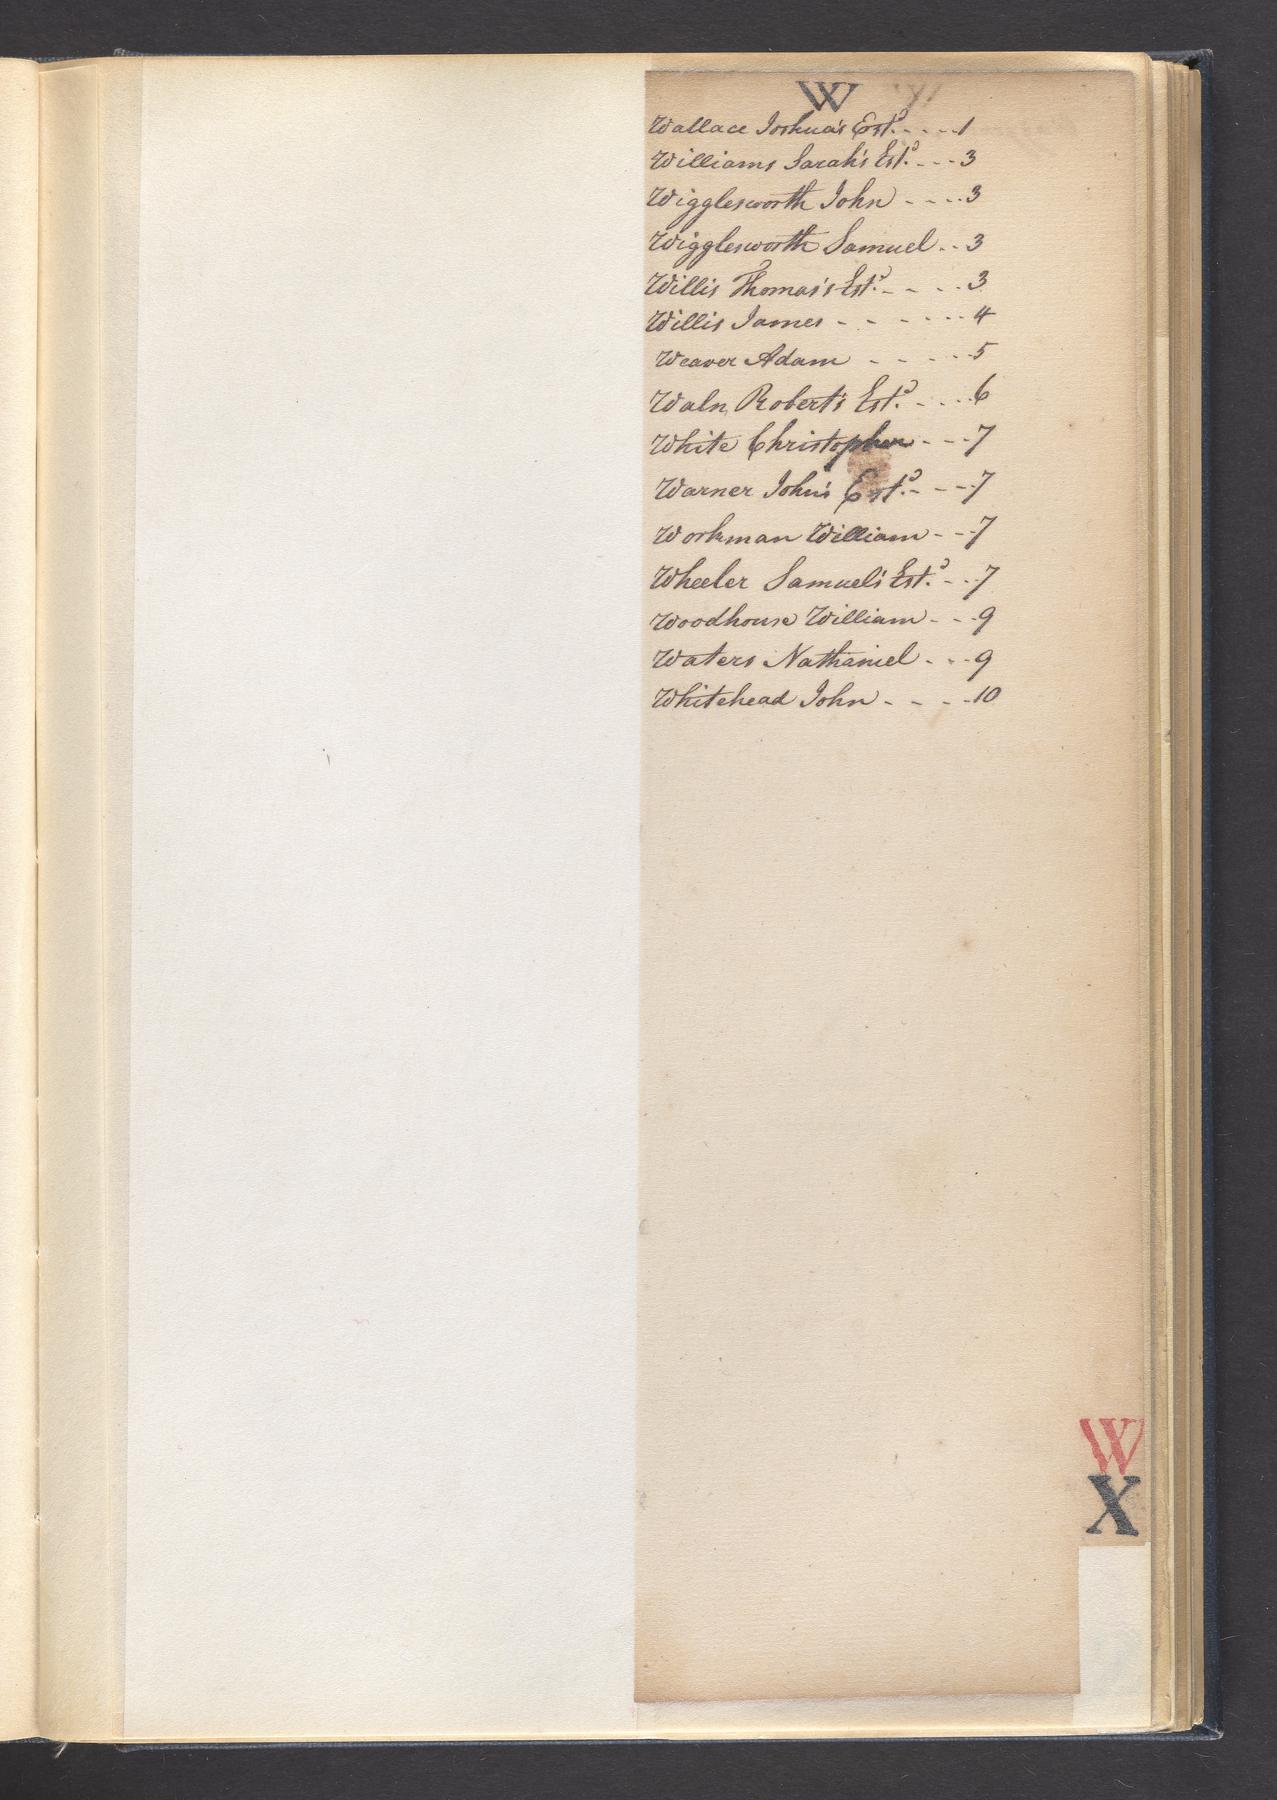 W
Wallace Joshua's Est.d - - - - 1
Williams Sarah's Est.d - - - 3
Wigglesworth John - - - - 3
Wigglesworth Samuel - - 3
Willis Thomas's Est.d - - - - 3
Willis James - - - - - - 4
Weaver Adam - - - - - 5
Waln Robert's Est.d - - - - 6
White Christopher - - - 7
Warner John's Est.d - - - 7
Workman William - - - 7
Wheeler Samuel's Est.d - - - 7
Woodhouse William - - - 9
Waters Nathaniel - - - 9
Whitehead John - - - - 10
W
X